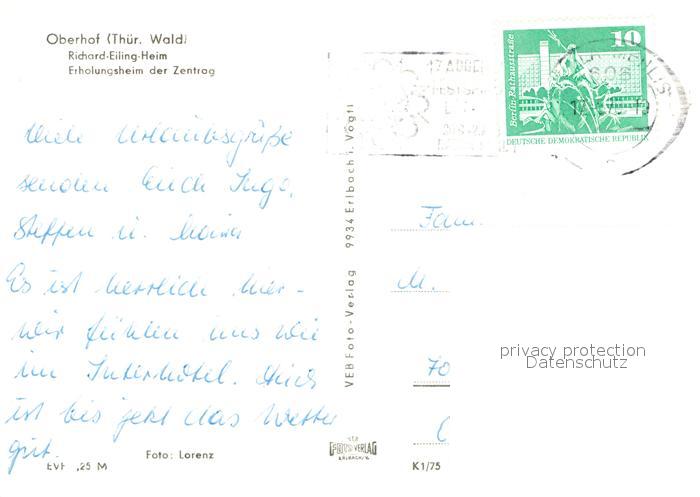 Oberhof (Thür. Wald)
Richard-Eiling-Heim
Erholungsheim der Zentrag
10
Berlin-Rathausstraße
DEUTSCHE DEMOKRATISCHE REPUBLIK
Viele Urlaubsgrüße
senden Euch Inge,
Steffen u.
Es ist herrlich hier -
wir fühlen uns wie
im Interhotel. Auch
ist bis jetzt das Wetter
gut.
VEB Foto-Verlag 9934 Erlbach i. Vogtl
Fam.
M.
70
privacy protection
Datenschutz
FOTO-VERLAG
ERLBACH/V.
EVP ,25 M
Foto: Lorenz
K1/75